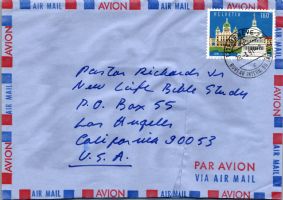 AIR MAIL PAR AVION AIR MAIL PAR AVION
HELVETIA 180
Pastor Richards Jr
New Life Bible Study
P.O. Box 55
Los Angeles
California 90053
U.S.A.
PAR AVION
VIA AIR MAIL
AVION
AIR MAIL PAR AVION AIR MAIL PAR AVION AIR MAIL